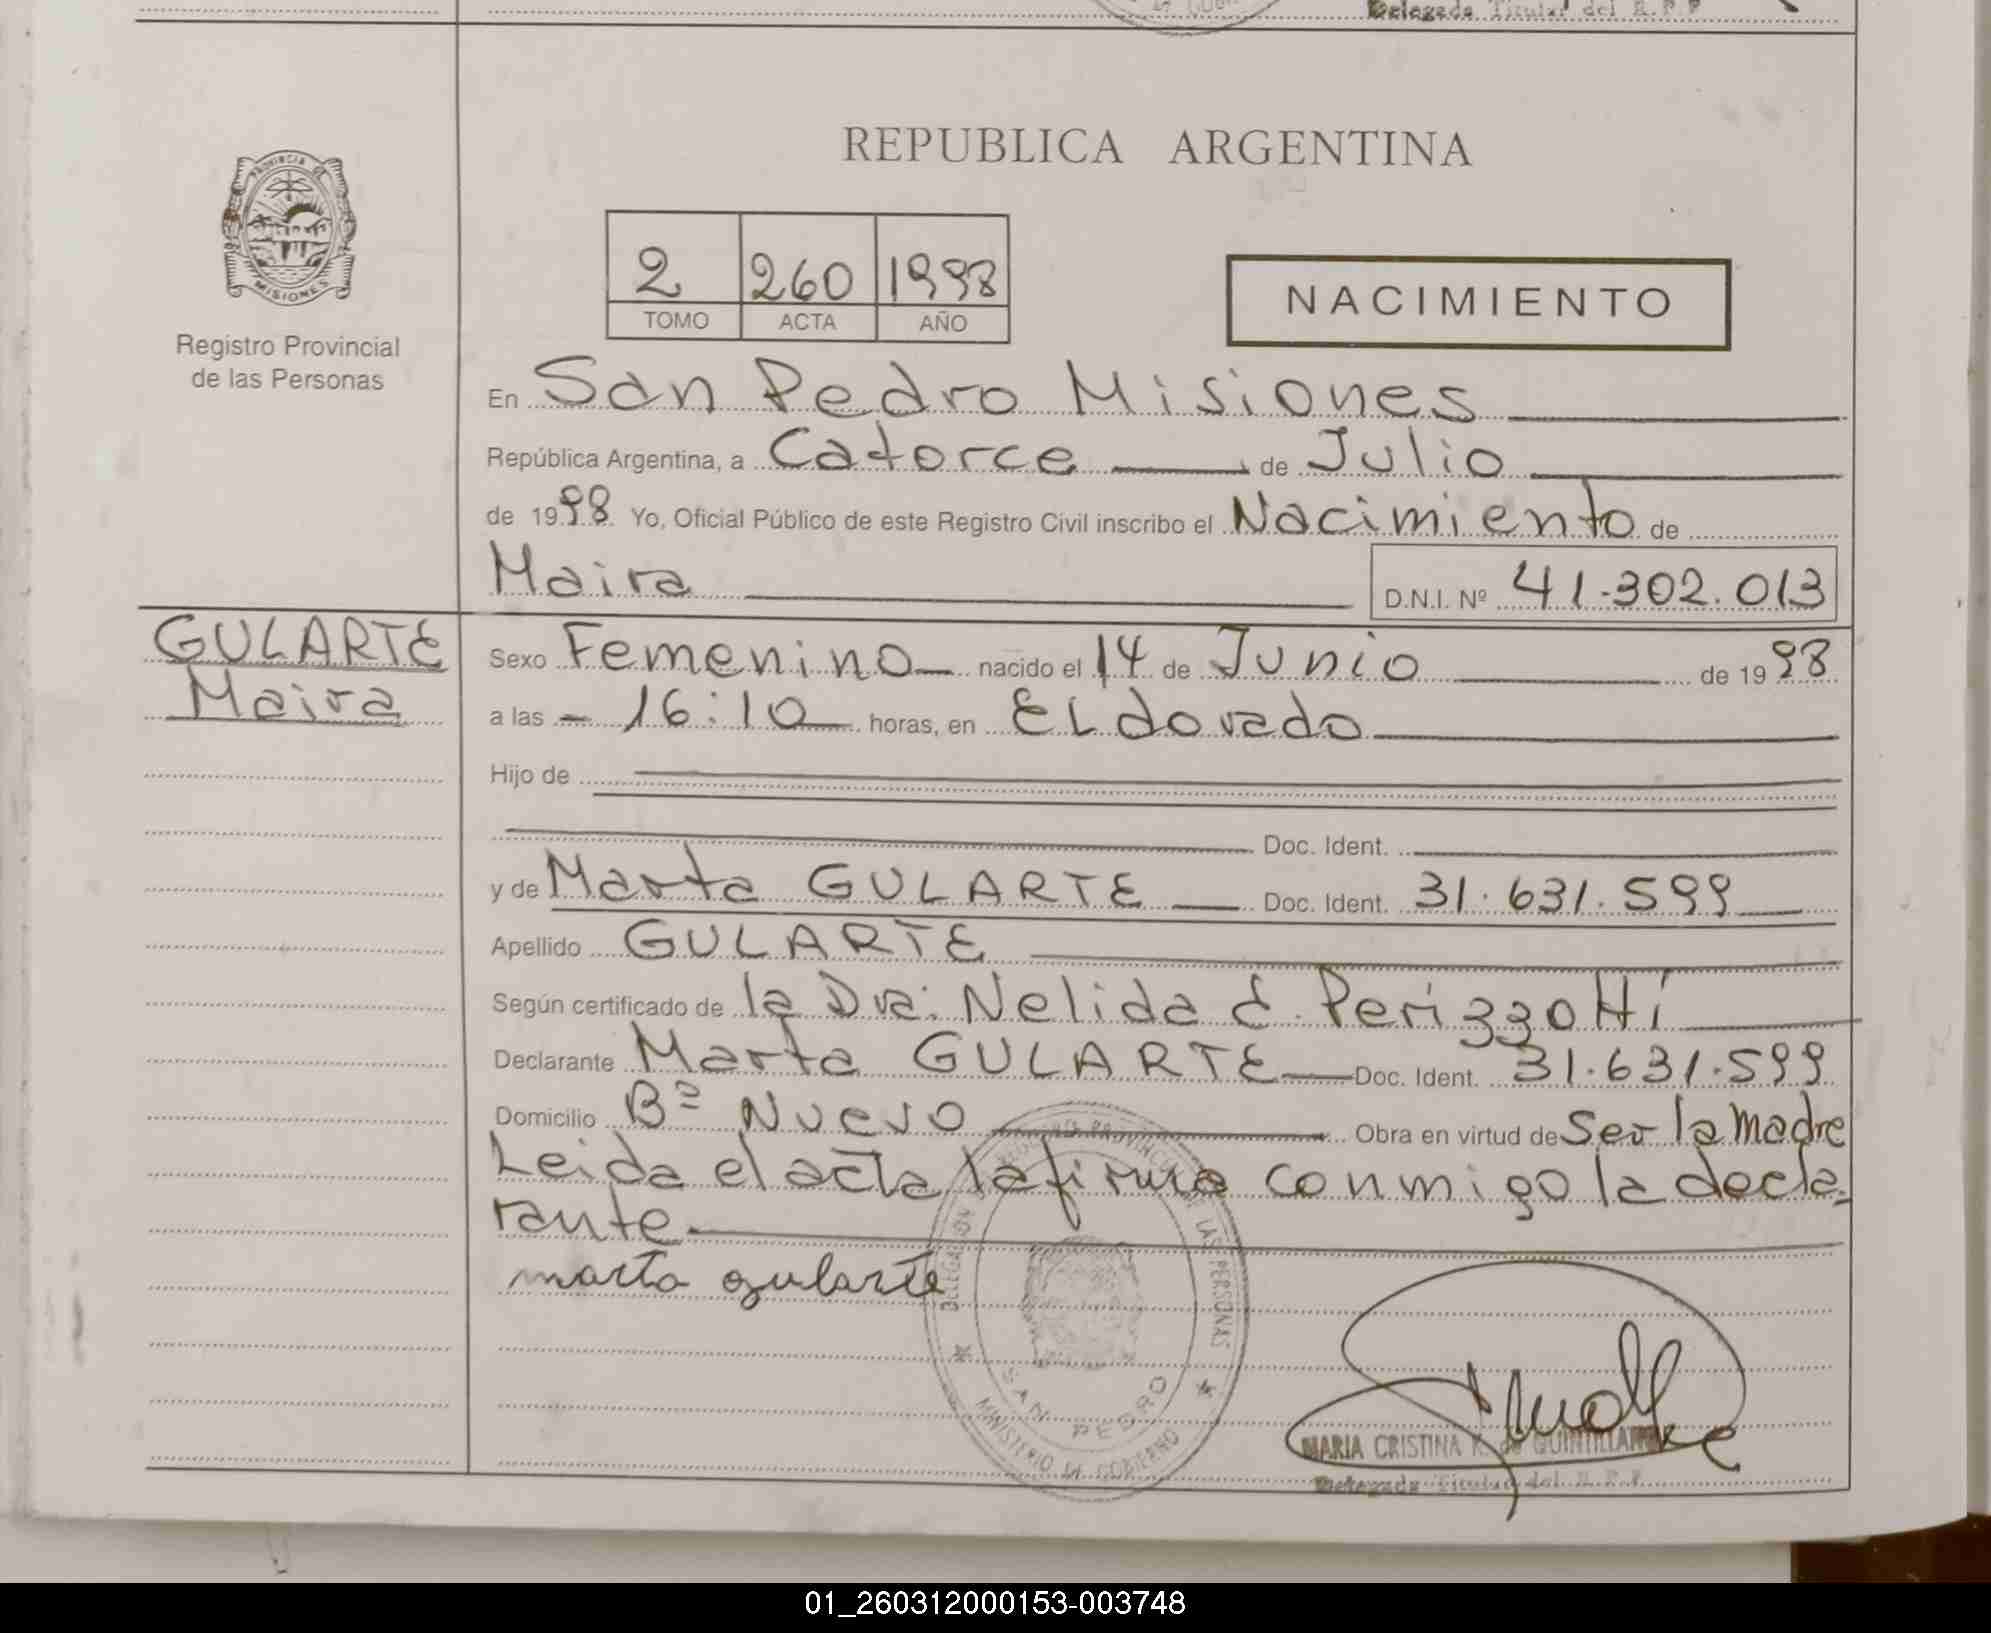 Delegada Titular del R.P.P
REPUBLICA ARGENTINA
PROVINCIA DE
MISIONES
Registro Provincial
de las Personas
2 260 1998
TOMO ACTA AÑO
NACIMIENTO
En San Pedro Misiones
República Argentina, a Catorce de Julio
de 1998 Yo, Oficial Público de este Registro Civil inscribo el Nacimiento de
Maira D.N.I. Nº 41.302.013
GULARTE
Maira
Sexo Femenino nacido el 14 de Junio de 1998
a las - 16:10 horas, en ELdorado
Hijo de
Doc. Ident.
y de Marta GULARTE Doc. Ident. 31.631.599
Apellido GULARTE
Según certificado de la Dra: Nelida E. Perizzotti
Declarante Marta GULARTE Doc. Ident. 31.631.599
Domicilio Bº Nuevo Obra en virtud de Ser la Madre
Leida el acta la firma conmigo la decla-
rante
marta gularte
DELEGACION REGISTRO PROVINCIAL DE LAS PERSONAS
SAN PEDRO
MINISTERIO DE GOBIERNO
MARIA CRISTINA K. de QUINTILLAN
Delegada Titular del R.P.P.
01_260312000153-003748